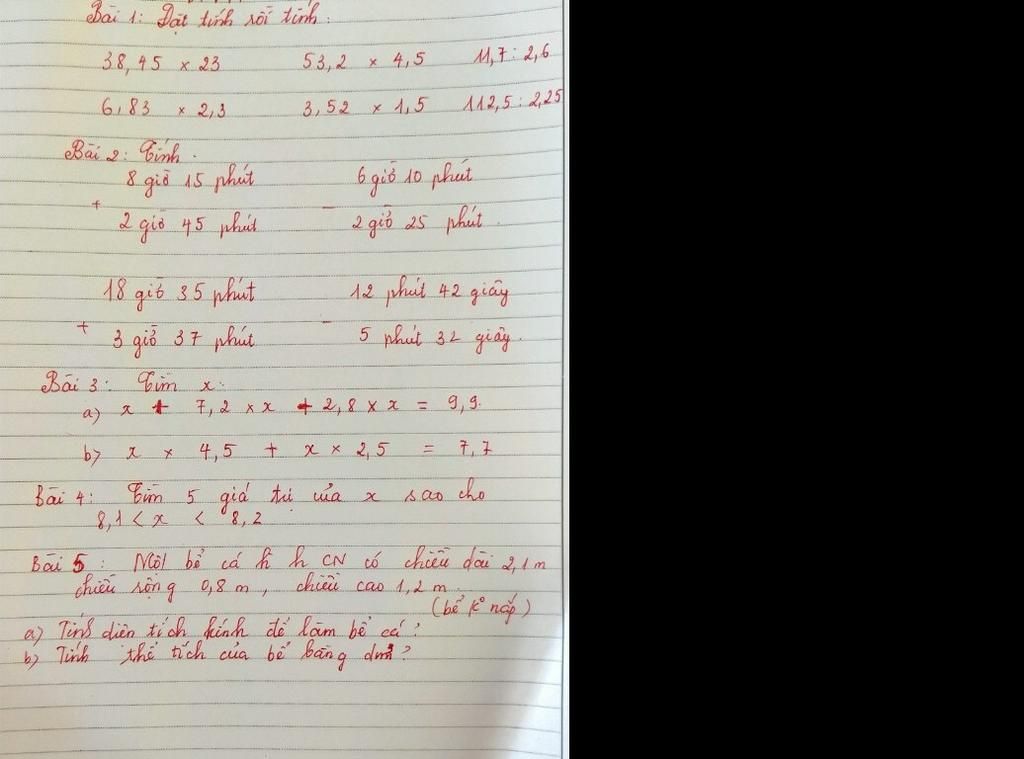 Bài 1: Đặt tính rồi tính:
38,45 × 23 53,2 × 4,5 11,7 : 2,6
6,83 × 2,3 3,52 × 1,5 112,5 : 2,25
Bài 2: Tính.
8 giờ 15 phút 6 giờ 10 phút
+ -
2 giờ 45 phút 2 giờ 25 phút.
18 giờ 35 phút 12 phút 42 giây
+ -
3 giờ 37 phút 5 phút 32 giây.
Bài 3: Tìm x.
a) x + 7,2 × x + 2,8 × x = 9,9.
b) x × 4,5 + x × 2,5 = 7,7
Bài 4: Tìm 5 giá trị của x sao cho
8,1 < x < 8,2
Bài 5: Một bể cá h h CN có chiều dài 2,1 m
chiều rộng 0,8 m, chiều cao 1,2 m.
(bể k° nắp)
a) Tính diện tích kính để làm bể cá?
b) Tính thể tích của bể bằng dm³?